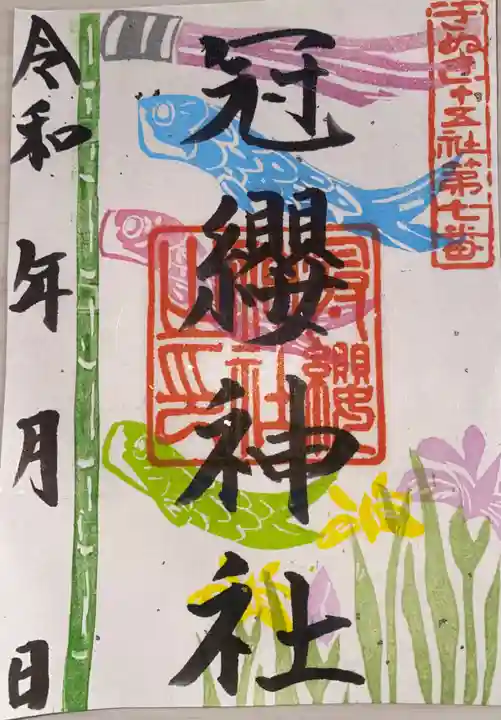 さぬき十五社第七番
冠纓神社
冠纓
神社
之印
令和 年 月 日